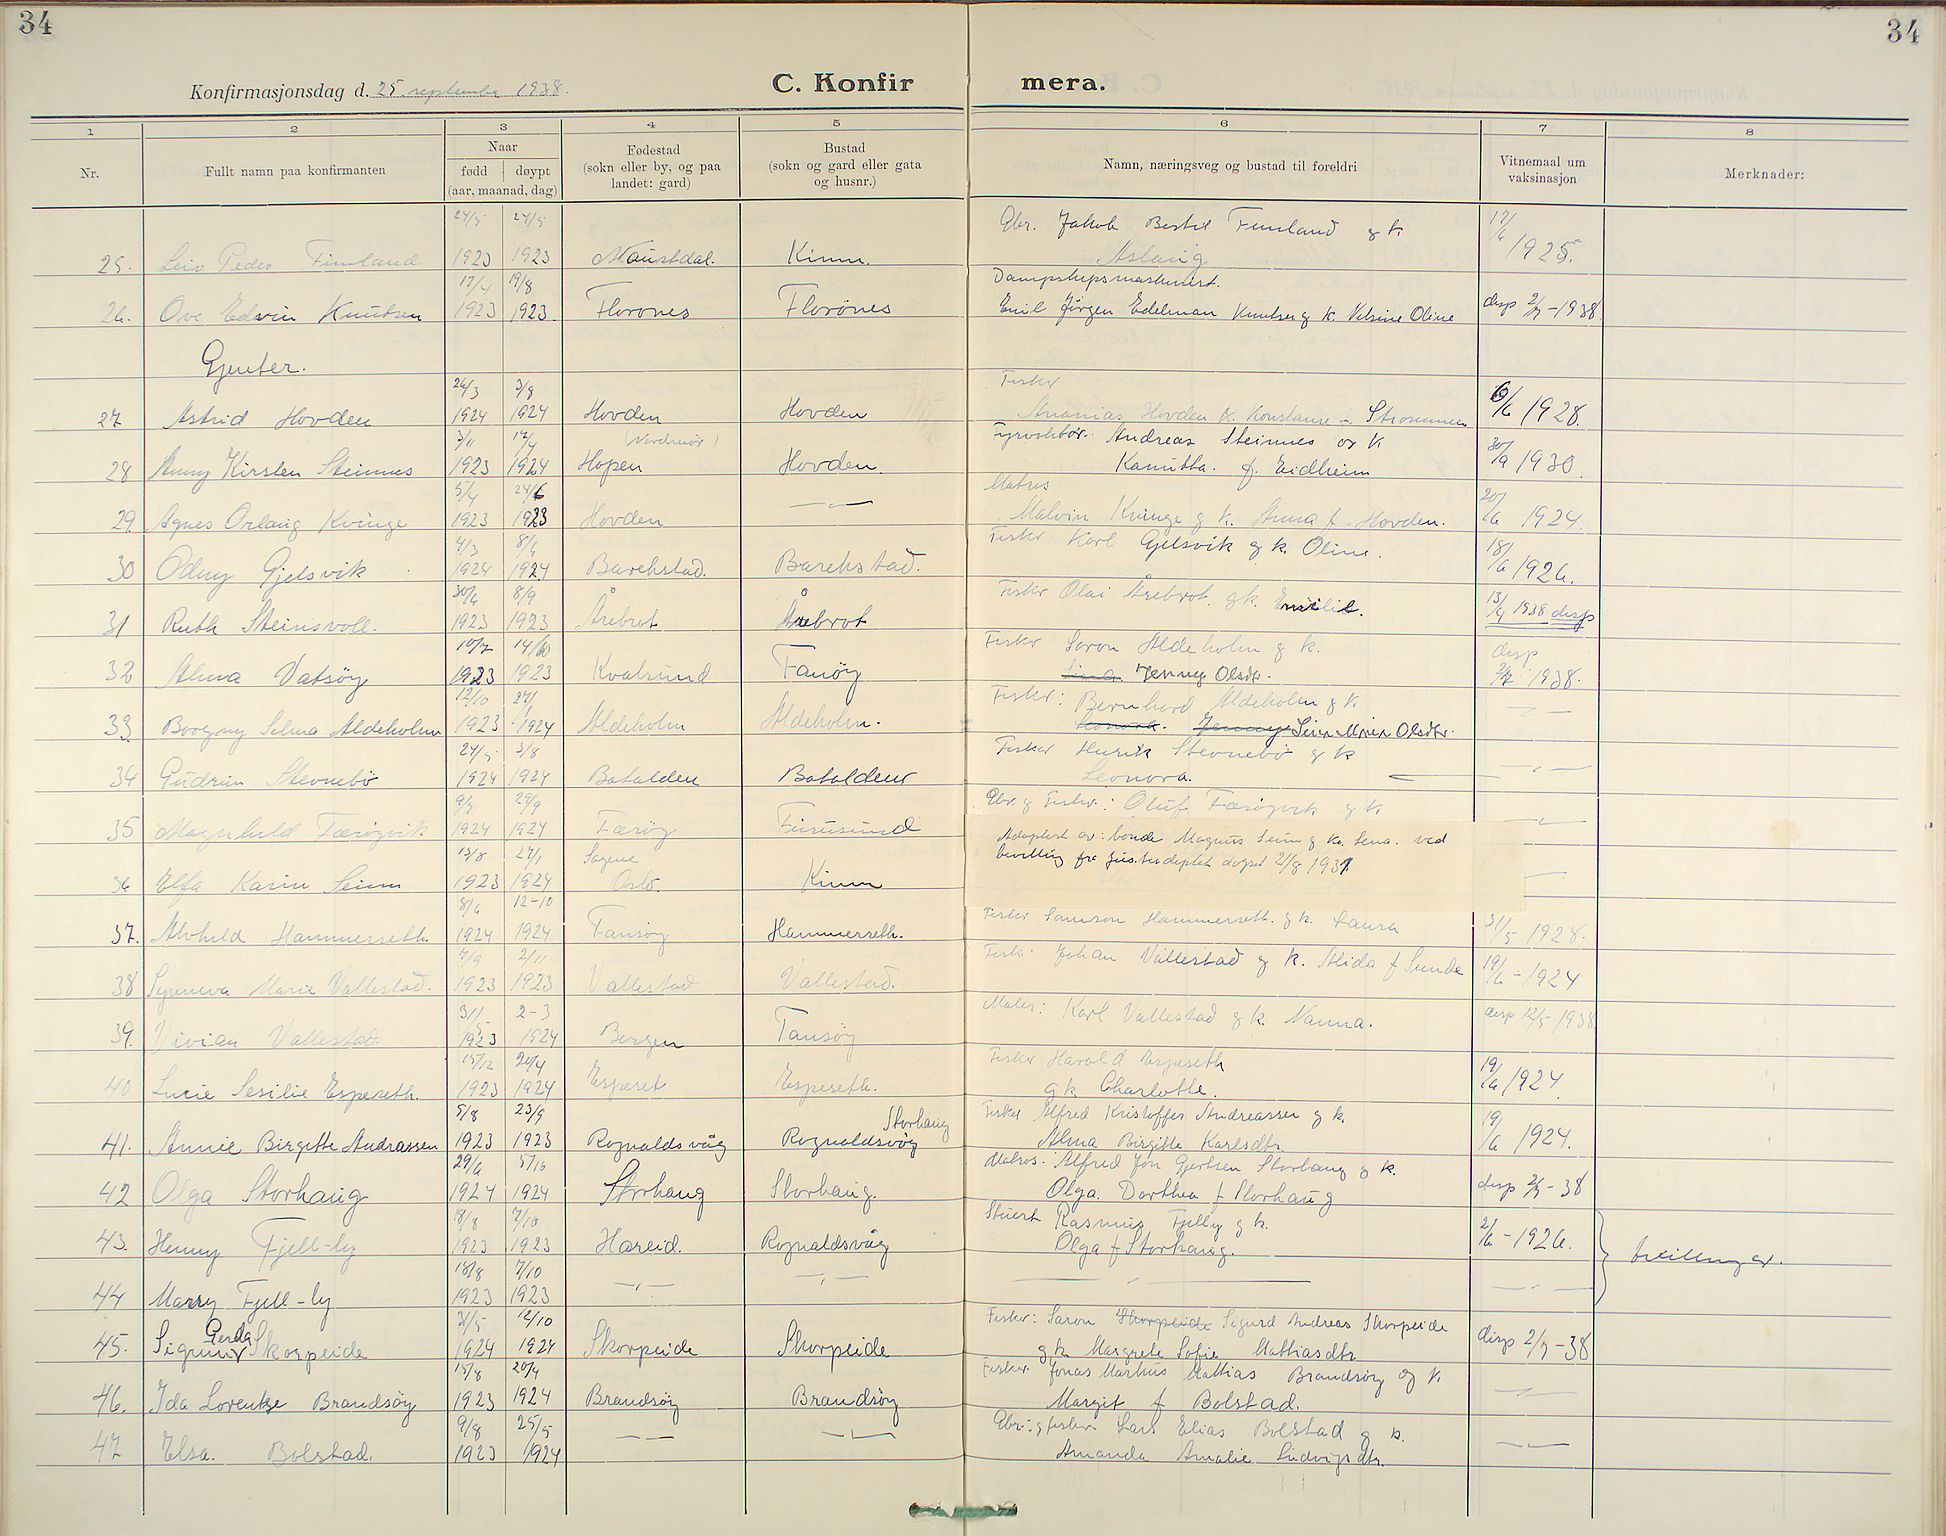 34
34
Konfirmasjonsdag d. 25. september 1938.
C. Konfir
mera.
1 2 3 4 5 6 7 8
Nr.
Fullt namn paa konfirmanten
Naar
fødd døypt
(aar, maanad, dag)
Fødestad
(sokn eller by, og paa
landet: gard)
Bustad
(sokn og gard eller gata
og husnr.)
Namn, næringsveg og bustad til foreldri
Vitnemaal um
vaksinasjon
Merknader:
24/5 24/5 Gbr. Jakob Bertil Fimland g k. 17/6
25. Leiv Peder Fimland 1923 1923 Naustdal. Kinn. Aslaug 1925.
17/4 19/8 Dampskipsmaskinist.
26. Ove Edvin Knutsen 1923 1923. Florones Florönes Emil Jörgen Edelman Knutsen g k. Valsine Oline disp 2/9-1938
Gjenter.
26/3 3/8 Fisker
27 Astrid Hovden 1924 1924 Hovden Hovden Ananias Hovden k. Konstanse f. Strommen 6/6 1928.
3/11 17/4 (Nordmör) Fyrvokter. Andreas Steinnes og k
28 Anny Kirsten Steinnes 1923 1924 Hopen Hovden. Kanutta. f. Eidheim 30/9 1930.
5/4 24/6 Matros
29. Agnes Orlaug Kvinge 1923 1923 Hovden —"— Malvin Kvinge g k. Anna f. Hovden. 20/6 1924.
4/3 8/6 Fisker Karl Gjelsvik g k. Oline. 18/6
30 Odny Gjelsvik 1924 1924 Barekstad. Barekstad. 1926.
30/6 8/9 Fisker Olai Årebrot. gk. Emilie. 13/9 1938 disp
31 Ruth Steinsvoll. 1923 1923 Årebrot Årebrot
10/7 14/10 Fisker Soron Aldeholm g k. disp
32 Alma Vatsöy 1923 1923 Kvalsund Fanöy Lina Jenny Olsdtr. 2/9 1938.
12/10 27/1 Fisker: Bernhard Aldeholm g k.
33. Borgny Selma Aldeholm 1923 1924 Aldeholm Aldeholm. Leonora. Jenny Lina Marie Olsdtr. —"—
27/5 3/8 Fisker Henrik Stevnebö g k
34 Gudrun Stevnebö 1924 1924 Batalden Batalden Leonora. —"—
9/7 29/9 Gbr. g Fisker.: Oluf Færöyvik g k.
35 Magnhild Færöyvik 1924 1924 Færöy Furusund —"—
13/8 27/1 Sagene Adoptert av: bonde Magnus Seim g k. Lena. ved
36 Elfa Karin Seim 1923 1924 Oslo. Kinn bevilling fra Justisdeptet dagset 21/8 1931 —"—
8/6 12-10 Fisker Samson Hammerseth. g k. Laura 31/5 1928.
37. Alvhild Hammerseth. 1924 1924 Tansöy Hammerseth.
7/9 2/11 Fisk: Johan Vallestad g k. Alida f Sunde 19/6-1924
38 Synneva Marie Vallestad. 1923 1923 Vallestad Vallestad.
3/11 2-3 Maler: Karl Vallestad g k. Nanna. disp 12/5 1938
39. Vivian Vallestad. 1923 1924 Bergen Tansöy
15/12 20/4 Fisker Harald Espeseth
40 Lucie Sesilie Espeseth. 1923 1924 Espeset Espeseth. g k Charlotte. 19/6 1924
5/8 23/9 Storhaug Fisker Alfred Kristoffer Andreassen g k.
41. Annie Birgitte Andrassen 1923 1923 Rognaldsvåg Rognaldsvåg Alma Birgitte Karlsdtr 19/6 1924.
29/6 5/10 Matros. Alfred Jon Gjertsen Storhaug g k.
42 Olga Storhaug 1924 1924 Storhaug Storhaug. Olga. Dorthea f Storhaug disp 2/9-38
18/8 7/10 Stuert Rasmus Fjelly g k.
43. Henny Fjell-ly 1923 1923 Hareid. Rognaldsvåg Olga f Storhaug. 2/6-1926. tvillinger.
18/8 7/10
44 Marry Fjell-ly 1923 1923 —"— —"— —"— —"—
31/5 12/10 Fisker: Saron Skorpeide Sigurd Andreas Skorpeide
45. Sigunn Gerda Skorpeide 1924 1924 Skorpeide Skorpeide g k. Margrete Sofie Mattiasdtr disp 2/9-38
15/8 20/4 Fisker Jonas Markus Mattias Brandsöy og k.
46. Ida Lorentze Brandsöy 1923 1924 Brandsöy Brandsöy Margit f Bolstad. —"—
9/8 25/5 Gbr. g fisker Lars Elias Bolstad g k.
47 Elsa. Bolstad. 1923 1924 —"— —"— Amanda Amalie Ludvigsdtr. —"—